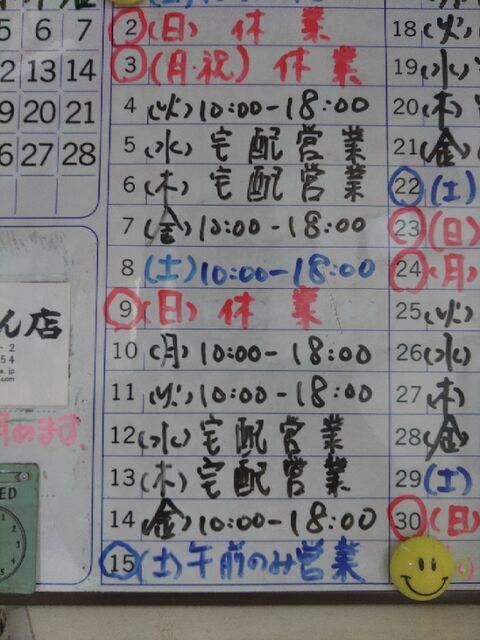 5 6 7
12 13 14
19 20 21
26 27 28
2 (日) 休業
3 (月・祝) 休業
4 (火) 10:00-18:00
5 (水) 宅配営業
6 (木) 宅配営業
7 (金) 10:00-18:00
8 (土) 10:00-18:00
9 (日) 休業
10 (月) 10:00-18:00
11 (火) 10:00-18:00
12 (水) 宅配営業
13 (木) 宅配営業
14 (金) 10:00-18:00
15 (土) 午前のみ営業
18 (火)
19 (水)
20 (木)
21 (金)
22 (土)
23 (日)
24 (月)
25 (火)
26 (水)
27 (木)
28 (金)
29 (土)
30 (日)
ん店